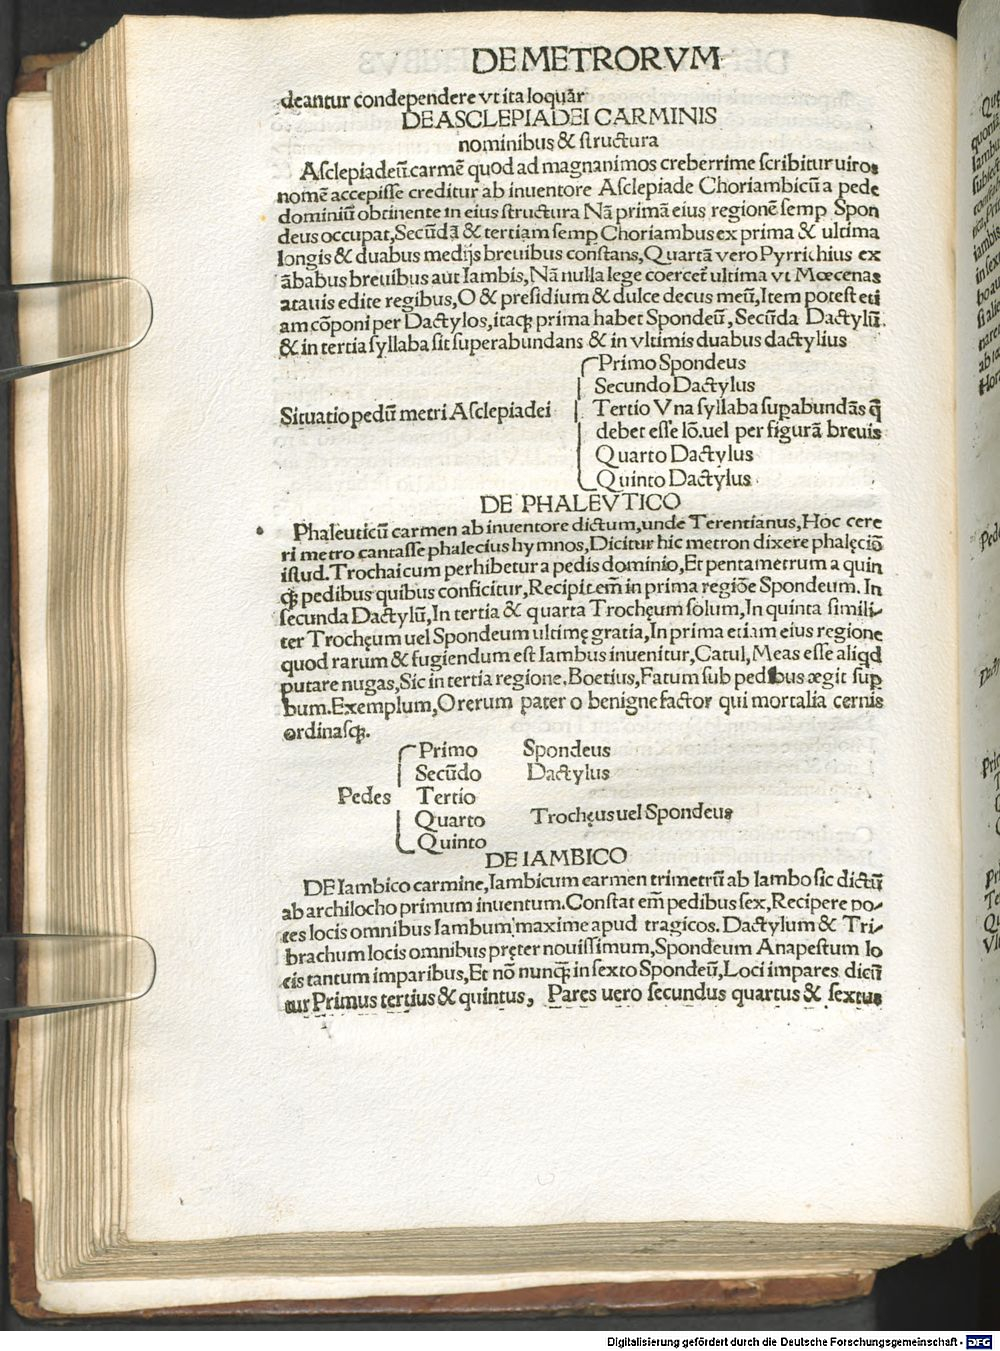 DE METRORVM
deantur condependere vt ita loquar
DE ASCLEPIADEI CARMINIS
nominibus & ſtructura
Aſclepiadeũ.carmẽ quod ad magnanimos creberrime ſcribitur uiros
nomẽ accepiſſe creditur ab inuentore Aſclepiade Choriambicũ a pede
dominiũ obtinente in eius ſtructura Nã primã eius regionẽ ſemꝑ Spon
deus occupat,Secũdã & tertiam ſemꝑ Choriambus ex prima & ultima
longis & duabus medijs breuibus conſtans,Quartã vero Pyrrichius ex
ãbabus breuibus aut Iambis,Nã nulla lege coercet̃ ultima vt Mœcenas
atauis edite regibus,O & preſidium & dulce decus meũ,Item poteſt eti
am cõponi per Dactylos,itaq̃ prima habet Spondeũ,Secũda Dactylũ.
& in tertia ſyllaba ſit ſuperabundans & in vltimis duabus dactylius
Primo Spondeus
Secundo Dactylus
Situatio pedũ metri Aſclepiadei
Tertio Vna ſyllaba ſuꝑabundãs q̃
debet eſſe lõ.uel per figurã breuis
Quarto Dactylus
Quinto Dactylus
DE PHALEVTICO
Phaleuticũ carmen ab inuentore dictum,unde Terentianus,Hoc cere
ri metro cantaſſe phalecius hymnos,Dicitur hic metron dixere phalęciõ
iſtud.Trochaicum perhibetur a pedis dominio,Et pentametrum a quin
q̃ pedibus quibus conficitur,Recipit em̃ in prima regiõe Spondeum. In
ſecunda Dactylũ,In tertia & quarta Trochęum ſolum,In quinta ſimili-
ter Trochęum uel Spondeum ultimę gratia,In prima etiam eius regione
quod rarum & fugiendum eſt Iambus inuenitur,Catul,Meas eſſe aliqd
putare nugas,Sic in tertia regione.Boetius,Fatum ſub pedibus ægit ſuꝑ
bum.Exemplum,O rerum pater o benigne factor qui mortalia cernis
ordinaſq̃.
Primo Spondeus
Secũdo Dactylus
Pedes Tertio
Quarto Trochęus uel Spondeus
Quinto
DE IAMBICO
DE Iambico carmine,Iambicum carmen trimetrũ ab Iambo ſic dictũ
ab archilocho primum inuentum.Conſtat em̃ pedibus ſex,Recipere po-
tes locis omnibus Iambum maxime apud tragicos.Dactylum & Tri-
brachum locis omnibus pręter nouiſſimum,Spondeum Anapeſtum lo
cis tantum imparibus,Et nõ nunq̃ in ſexto Spondeũ,Loci impares dicũ
tur Primus tertius & quintus, Pares uero ſecundus quartus & ſextus
Digitalisierung gefördert durch die Deutsche Forschungsgemeinschaft - DFG